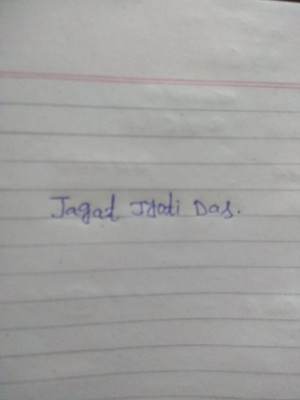 Jagad Jyoti Das.